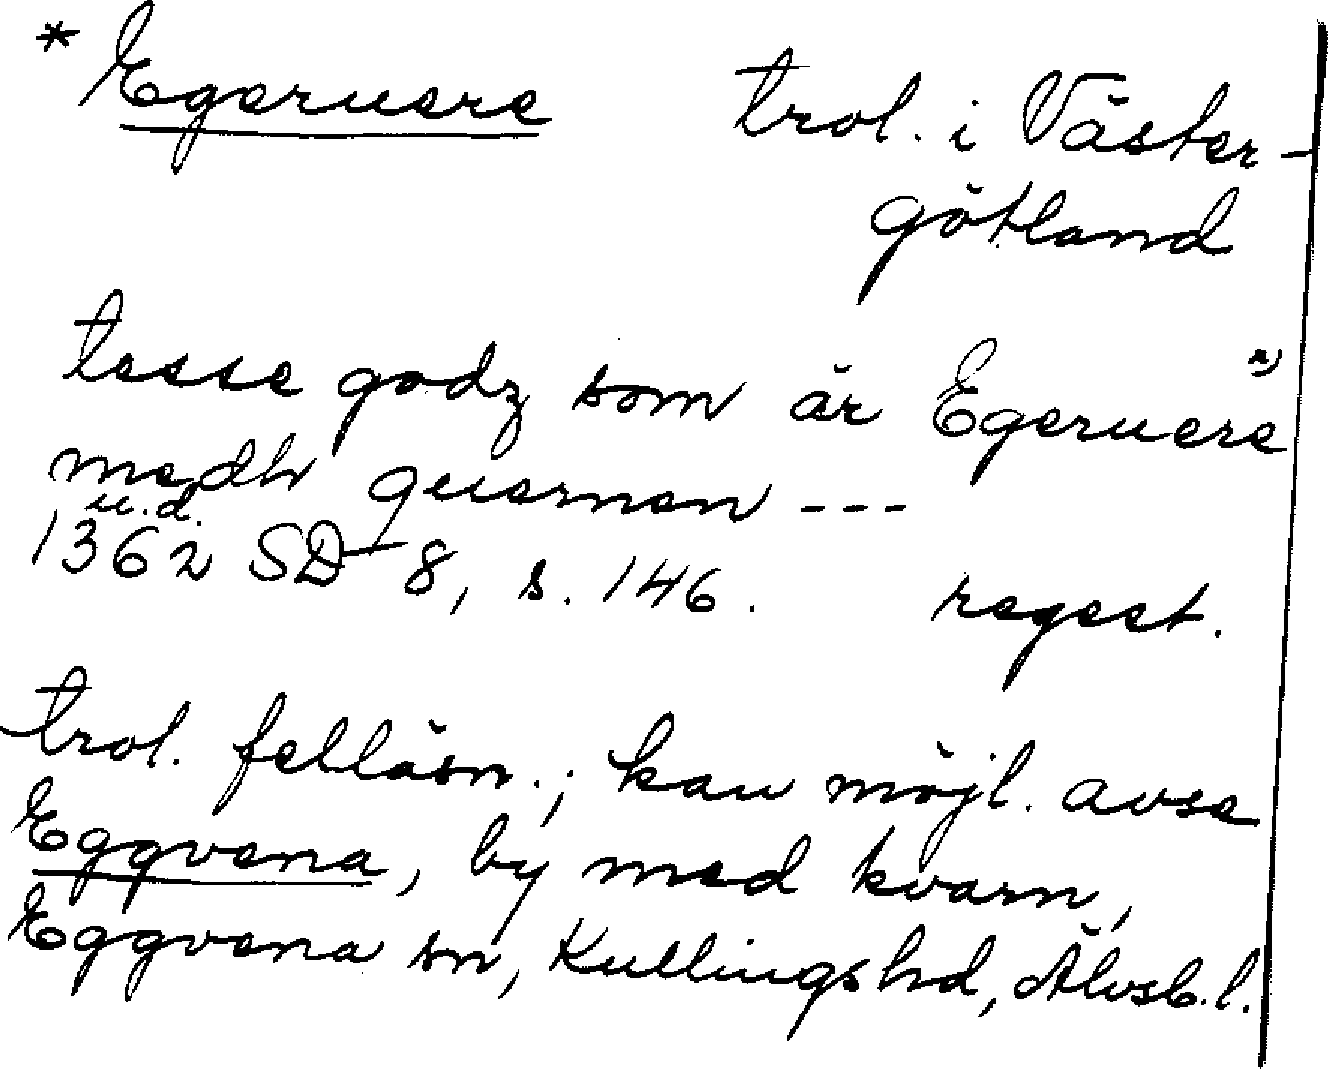 * Egeruere trol. i Väster-
götland
tesse godz som är Egeruere a)
medh quernen ---
u.d.
1362 SD 8, s. 146. regest.
trol. felläsn.; kan möjl. avse
Eggvena, by med kvarn,
Eggvena sn, Kullings hd, Älvsb. l.